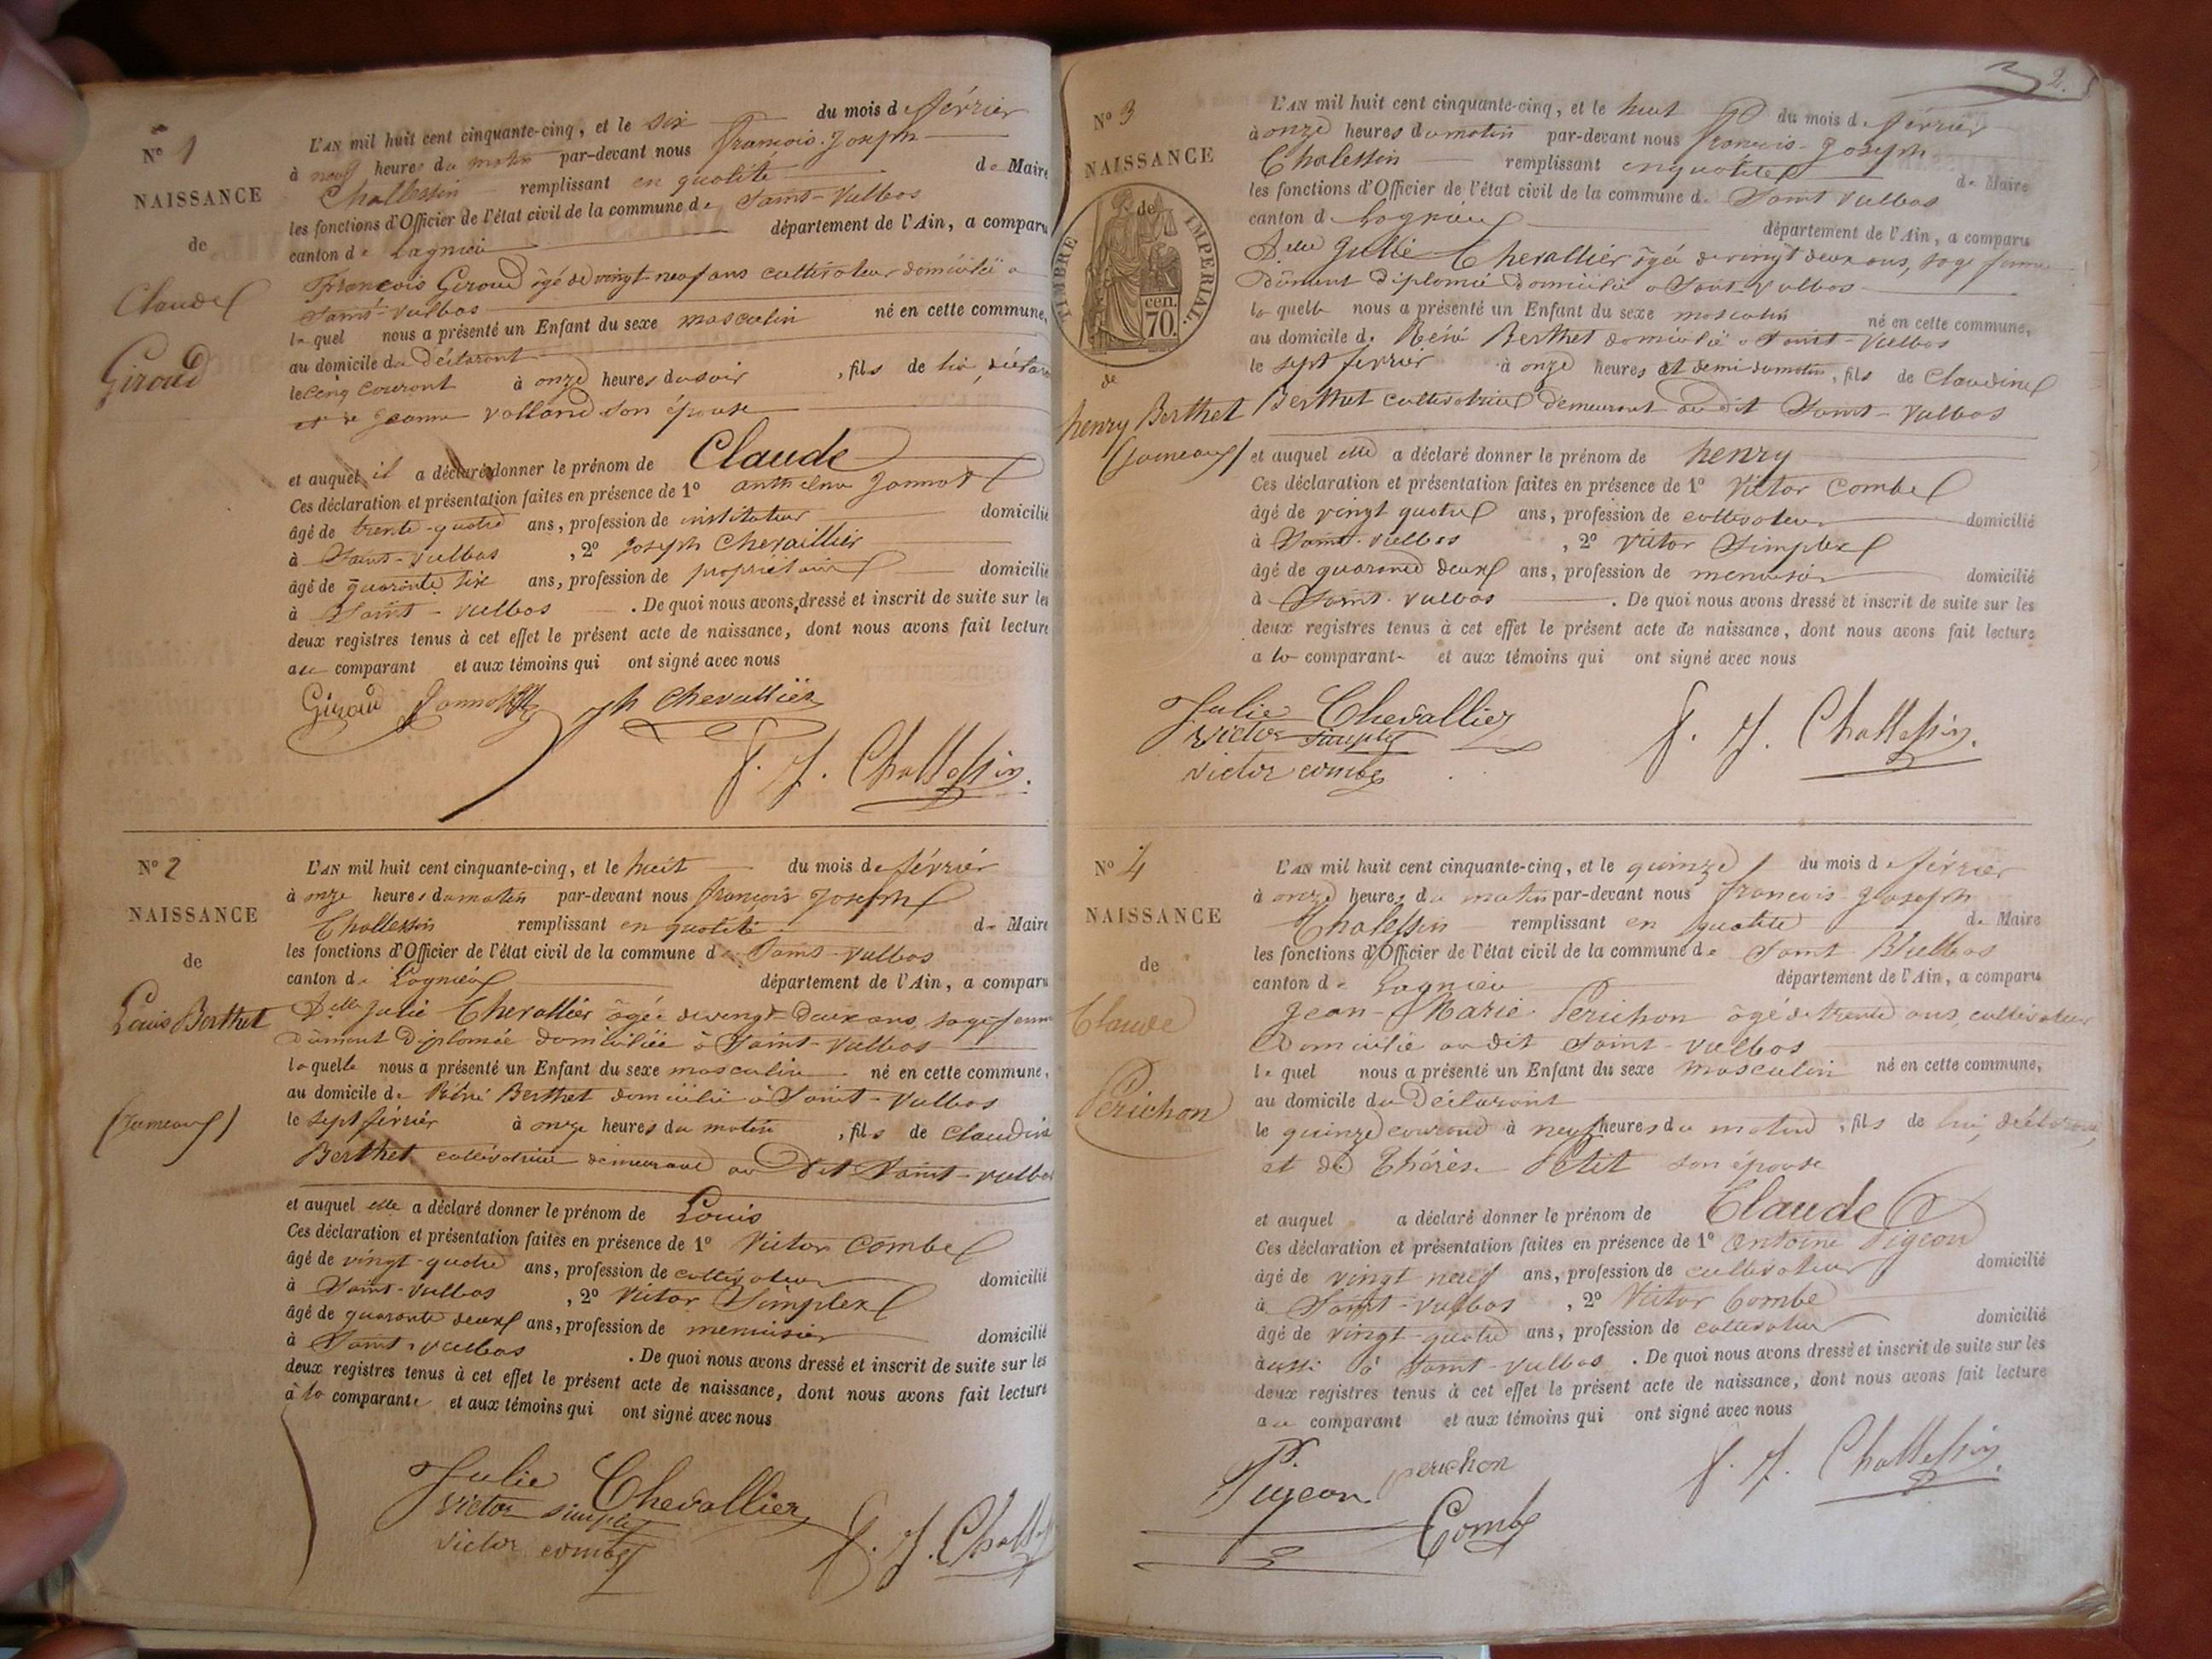 N° 1
NAISSANCE
de
Claude
Giroud
L'AN mil huit cent cinquante-cinq, et le six du mois de février
à neuf heures du matin par-devant nous François-Joseph
Challessin remplissant en qualité de Maire
les fonctions d'Officier de l'état civil de la commune de Saint-Vulbas
canton de Lagnieu département de l'Ain, a comparu
François Giroud âgé de vingt-neuf ans cultivateur domicilié a
Saint-Vulbas
lequel nous a présenté un Enfant du sexe masculin né en cette commune,
au domicile du Déclarant
le cinq courant à onze heures du soir, fils de lui, déclarant
et de Jeanne Volland son épouse
et auquel il a déclaré donner le prénom de Claude
Ces déclaration et présentation faites en présence de 1° anthelme Jannot
âgé de trente-quatre ans, profession de instituteur domicilié
à Saint-Vulbas, 2° Joseph Chevallier
âgé de quarante six ans, profession de propriétaire domicilié
à Saint-Vulbas. De quoi nous avons dressé et inscrit de suite sur les
deux registres tenus à cet effet le présent acte de naissance, dont nous avons fait lecture
au comparant et aux témoins qui ont signé avec nous
Giroud Jannot Jh Chevallier
f. J. Challessin.
N° 2
NAISSANCE
de
Louis Berthet
(Jumeau)
L'AN mil huit cent cinquante-cinq, et le huit du mois de février
à onze heures du matin par-devant nous françois Joseph
Challessin remplissant en qualité de Maire
les fonctions d'Officier de l'état civil de la commune de Saint-Vulbas
canton de Lagnieu département de l'Ain, a comparu
Delle Julie Chevallier âgée de vingt-deux ans, sage-femme
dûment Diplomée domiciliée à Saint-Vulbas
laquelle nous a présenté un Enfant du sexe masculin né en cette commune,
au domicile de Réné Berthet domicilié à Saint-Vulbas
le sept février à onze heures du matin, fils de Claudine
Berthet cultivatrice demeurant au Dit Saint-Vulbas
et auquel elle a déclaré donner le prénom de Louis
Ces déclaration et présentation faites en présence de 1° Victor Combe
âgé de vingt-quatre ans, profession de cultivateur domicilié
à Saint-Vulbas, 2° Victor Simplex
âgé de quarante deux ans, profession de menuisier domicilié
à Saint-Vulbas. De quoi nous avons dressé et inscrit de suite sur les
deux registres tenus à cet effet le présent acte de naissance, dont nous avons fait lecture
à la comparante et aux témoins qui ont signé avec nous
Julie Chevallier
victor simplex
victor combe
f. J. Chall
2.
N° 3
NAISSANCE
de
TIMBRE IMPÉRIAL.
70 cen.
de
henry Berthet
(Jumeau)
L'AN mil huit cent cinquante-cinq, et le huit du mois de février
à onze heures du matin par-devant nous françois-Joseph
Chalessin remplissant en qualité de Maire
les fonctions d'Officier de l'état civil de la commune de Saint Vulbas
canton de Lagnieu département de l'Ain, a comparu
Delle Julie Chevallier âgée de vingt deux ans, sage femme
Dûment diplomée domiciliée a Saint-Vulbas
laquelle nous a présenté un Enfant du sexe masculin né en cette commune,
au domicile de Réné Berthet domicilié a Saint-Vulbas
le sept fevrier à onze heures et demi du matin, fils de Claudine
Berthet cultivatrice demeurant au dit Saint-Vulbas
et auquel elle a déclaré donner le prénom de henry
Ces déclaration et présentation faites en présence de 1° Victor Combe
âgé de vingt quatre ans, profession de cultivateur domicilié
à Saint-Vulbas, 2° Victor Simplex
âgé de quarante deux ans, profession de menuisier domicilié
à Saint-Vulbas. De quoi nous avons dressé et inscrit de suite sur les
deux registres tenus à cet effet le présent acte de naissance, dont nous avons fait lecture
a la comparante et aux témoins qui ont signé avec nous
Julie Chevallier
victor simplex
victor combe
f. J. Challessin.
N° 4
NAISSANCE
de
Claude
Perichon
L'AN mil huit cent cinquante-cinq, et le quinze du mois de février
à onze heures du matin par-devant nous françois Joseph
Chalessin remplissant en qualité de Maire
les fonctions d'Officier de l'état civil de la commune de Saint Vulbas
canton de Lagnieu département de l'Ain, a comparu
Jean-Marie Perichon âgé de trente ans, cultivateur
Domicilié au dit Saint-Vulbas
lequel nous a présenté un Enfant du sexe masculin né en cette commune,
au domicile du Déclarant
le quinze courant à neuf heures du matin, fils de lui, déclarant,
et de Thérèse Petit son épouse
et auquel a déclaré donner le prénom de Claude
Ces déclaration et présentation faites en présence de 1° Antoine Pigeon
âgé de vingt neuf ans, profession de cultivateur domicilié
à Saint-Vulbas, 2° Victor Combe
âgé de vingt-quatre ans, profession de cultivateur domicilié
aussi à Saint-Vulbas. De quoi nous avons dressé et inscrit de suite sur les
deux registres tenus à cet effet le présent acte de naissance, dont nous avons fait lecture
au comparant et aux témoins qui ont signé avec nous
perichon
Pigeon
Combe
f. J. Challessin.